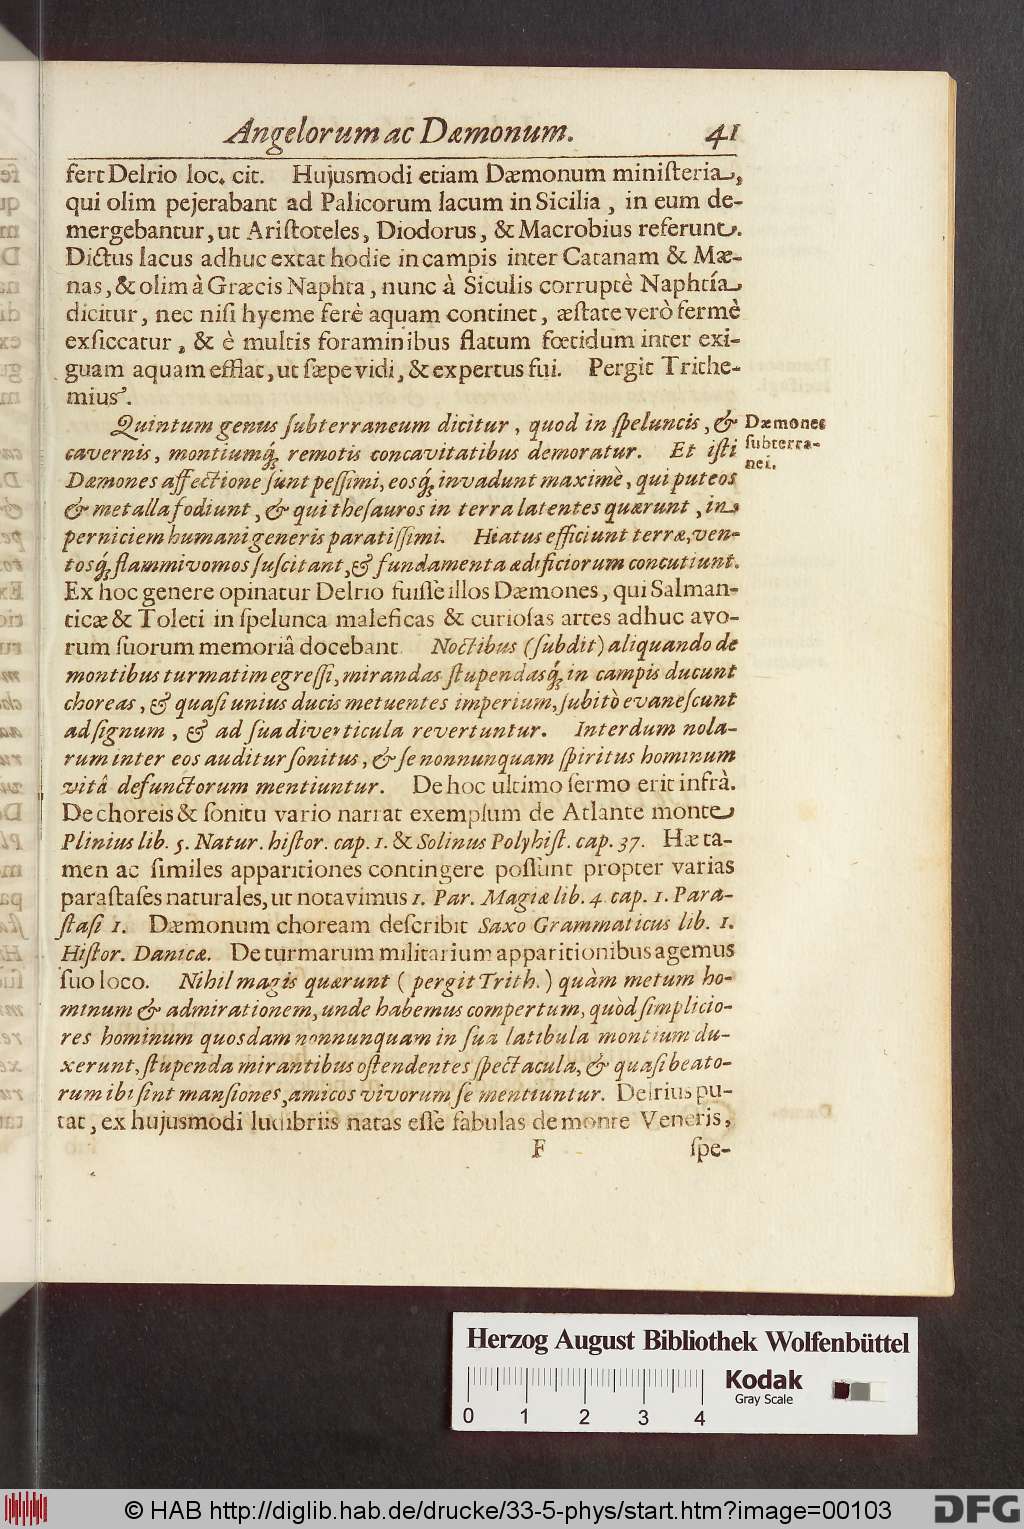 Angelorum ac Dæmonum. 41
fert Delrio loc. cit. Hujusmodi etiam Dæmonum miniſteria,
qui olim pejerabant ad Palicorum lacum in Sicilia, in eum de-
mergebantur, ut Ariſtoteles, Diodorus, & Macrobius referunt.
Dictus lacus adhuc extat hodie in campis inter Catanam & Mæ-
nas, & olim à Græcis Naphta, nunc à Siculis corruptè Naphtía
dicitur, nec niſi hyeme ferè aquam continet, æſtate verò fermè
exſiccatur, & è multis foraminibus flatum fœtidum inter exi-
guam aquam efflat, ut ſæpe vidi, & expertus fui. Pergit Trithe-
mius.
Quintum genus ſubterraneum dicitur, quod in ſpeluncis, &
cavernis, montiumq́; remotis concavitatibus demoratur. Et iſti
Dæmones affectione ſunt peſſimi, eosq́; invadunt maximè, qui puteos
& metalla fodiunt, & qui theſauros in terra latentes quærunt, in
perniciem humani generis paratiſſimi. Hiatus efficiunt terræ, ven-
tosq́; flammivomos ſuſcitant, & fundamenta ædificiorum concutiunt.
Dæmones
ſubterra-
nei.
Ex hoc genere opinatur Delrio fuiſſe illos Dæmones, qui Salman-
ticæ & Toleti in ſpelunca maleficas & curioſas artes adhuc avo-
rum ſuorum memoriâ docebant. Noctibus (ſubdit) aliquando de
montibus turmatim egreſſi, mirandas ſtupendasq́; in campis ducunt
choreas, & quaſi unius ducis metuentes imperium, ſubitò evaneſcunt
ad ſignum, & ad ſua diverticula revertuntur. Interdum nola-
rum inter eos auditur ſonitus, & ſe nonnunquam ſpiritus hominum
vitâ defunctorum mentiuntur. De hoc ultimo ſermo erit infrà.
De choreis & ſonitu vario narrat exemplum de Atlante monte
Plinius lib. 5. Natur. hiſtor. cap. 1. & Solinus Polyhiſt. cap. 37. Hæ ta-
men ac ſimiles apparitiones contingere poſſunt propter varias
paraſtaſes naturales, ut notavimus 1. Par. Magiæ lib. 4. cap. 1. Para-
ſtaſi 1. Dæmonum choream deſcribit Saxo Grammaticus lib. 1.
Hiſtor. Danicæ. De turmarum militarium apparitionibus agemus
ſuo loco. Nihil magis quærunt (pergit Trith.) quàm metum ho-
minum & admirationem, unde habemus compertum, quòd ſimplicio-
res hominum quosdam nonnunquam in ſua latibula montium du-
xerunt, ſtupenda mirantibus oſtendentes ſpectacula, & quaſi beato-
rum ibi ſint manſiones, amicos vivorum ſe mentiuntur. Delrius pu-
tat, ex hujusmodi ludibriis natas eſſe fabulas de monte Veneris,
F ſpe-
Herzog August Bibliothek Wolfenbüttel
0 1 2 3 4
Kodak
Gray Scale
© HAB http://diglib.hab.de/drucke/33-5-phys/start.htm?image=00103
DFG